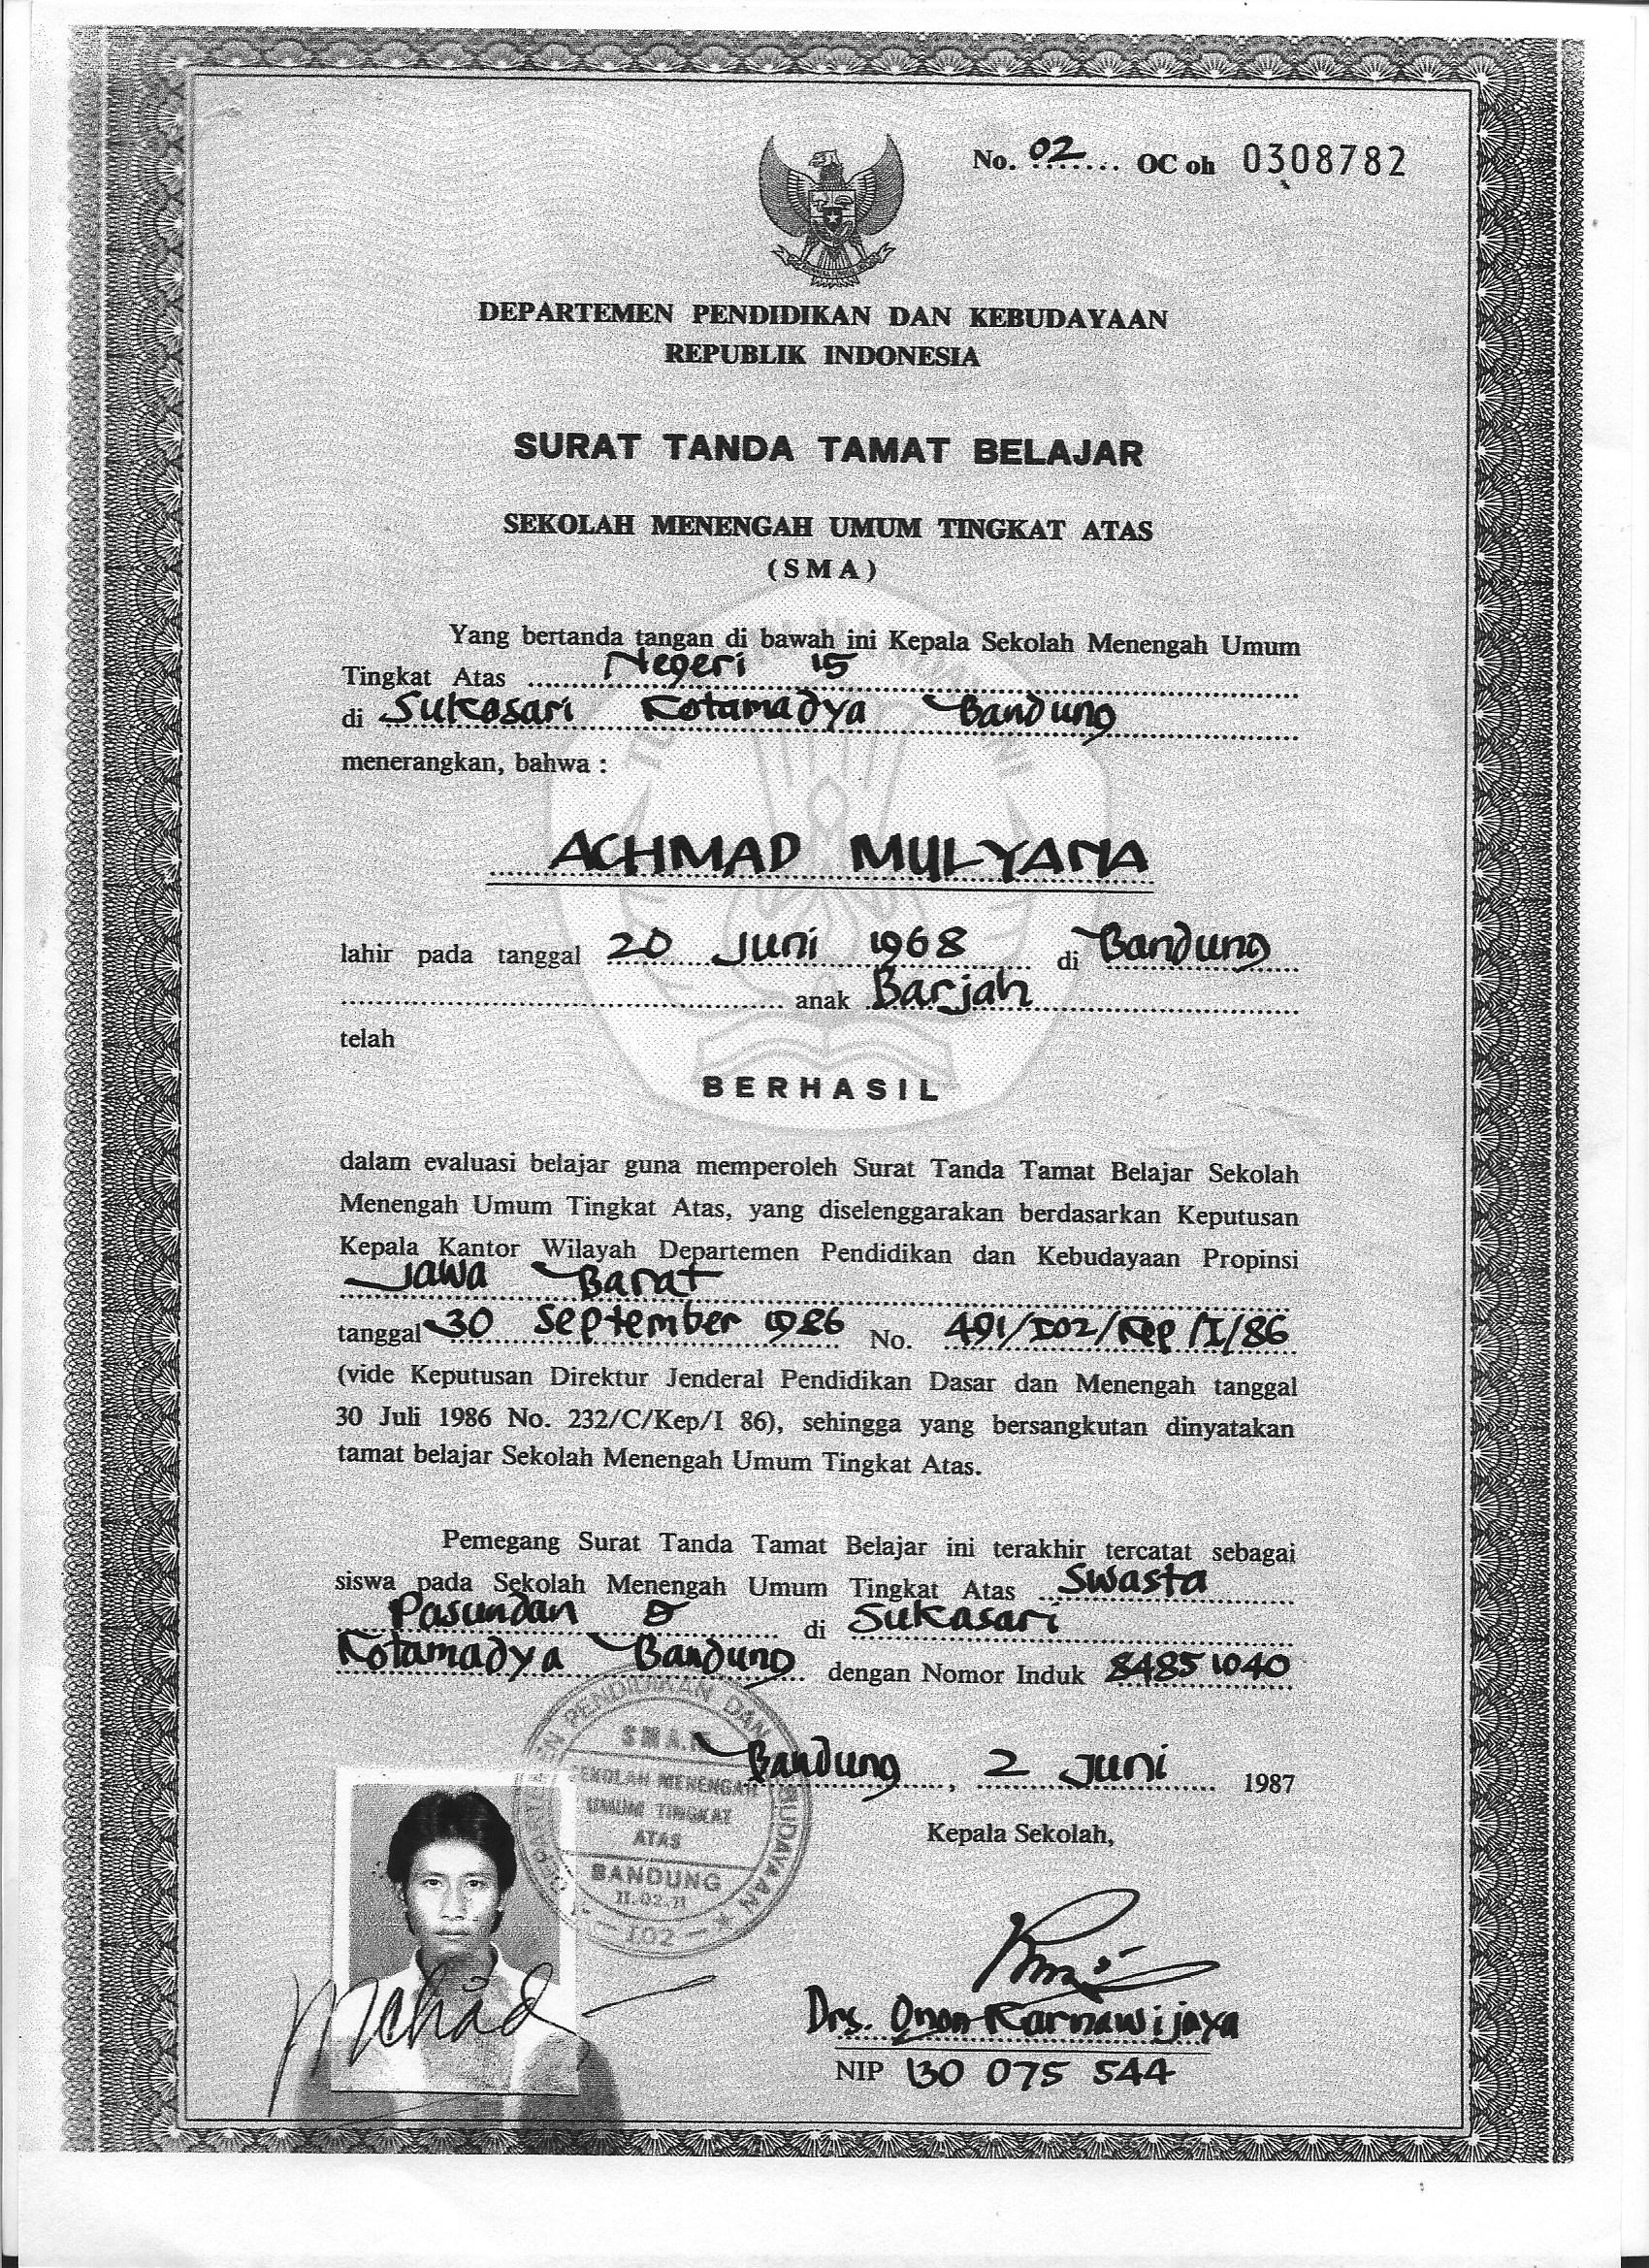 No. 02 OC oh 0308782
DEPARTEMEN PENDIDIKAN DAN KEBUDAYAAN
REPUBLIK INDONESIA
SURAT TANDA TAMAT BELAJAR
SEKOLAH MENENGAH UMUM TINGKAT ATAS
(SMA)
Yang bertanda tangan di bawah ini Kepala Sekolah Menengah Umum
Tingkat Atas Negeri 15
di Sukasari Kotamadya Bandung
menerangkan, bahwa :
ACHMAD MULYANA
lahir pada tanggal 20 Juni 1968 di Bandung
anak Barjah
telah
BERHASIL
dalam evaluasi belajar guna memperoleh Surat Tanda Tamat Belajar Sekolah
Menengah Umum Tingkat Atas, yang diselenggarakan berdasarkan Keputusan
Kepala Kantor Wilayah Departemen Pendidikan dan Kebudayaan Propinsi
Jawa Barat
tanggal 30 September 1986 No. 491/I02/Kep/I/86
(vide Keputusan Direktur Jenderal Pendidikan Dasar dan Menengah tanggal
30 Juli 1986 No. 232/C/Kep/I 86), sehingga yang bersangkutan dinyatakan
tamat belajar Sekolah Menengah Umum Tingkat Atas.
Pemegang Surat Tanda Tamat Belajar ini terakhir tercatat sebagai
siswa pada Sekolah Menengah Umum Tingkat Atas Swasta
Pasundan di Sukasari
Kotamadya Bandung dengan Nomor Induk 84851040
Bandung, 2 Juni 1987
Kepala Sekolah,
Drs. Onon Karnawijaya
NIP 130 075 544
SEKOLAH MENENGAH
UMUM TINGKAT
ATAS
BANDUNG
I02